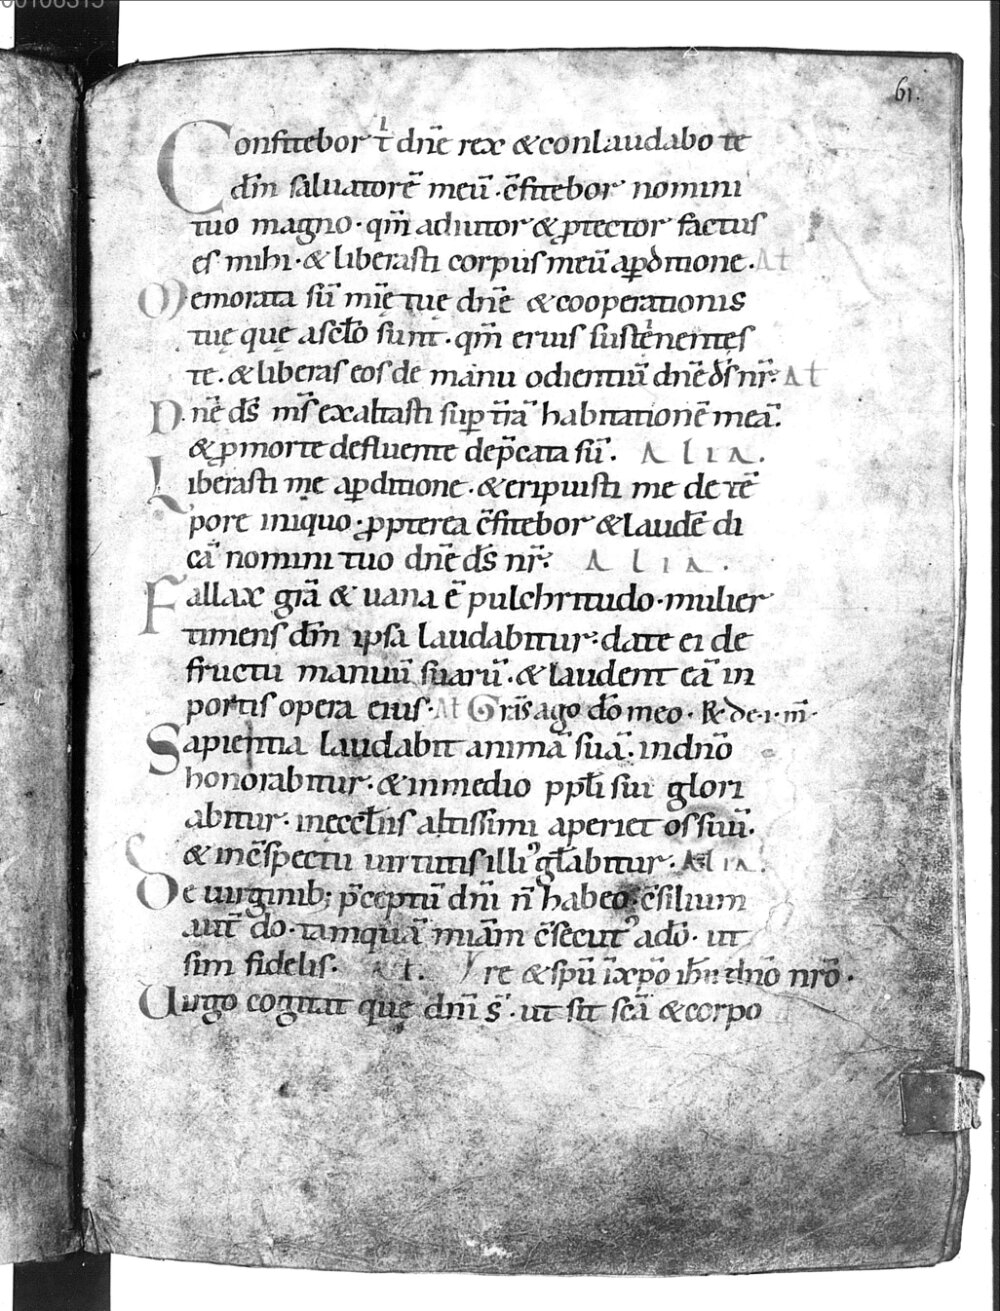 00106315
61.
Confitebor tͥ dn̄e rex & conlaudabo te
dm̄ saluatorē meū · c̄fitebor nomini
tuo magno · qm̄ adiutor & ꝓtector factus
es mihi · & liberasti corpus meū a ꝑditione · At
Memorata sū mīę tuę dn̄e & cooperationis
tuę quę a sc̄lo sunt · qm̄ eruis sustinentes
te · & liberas eos de manu odientiū dn̄e ds̄ nr̄: At
Dn̄e ds̄ ms̄ exaltasti suꝑ t̄rā habitationē meā.
& ꝓ morte defluente dep̄cata sū. ALIA.
Liberasti me a ꝑditione · & eripuisti me de tē
pore iniquo · ꝓpterea c̄fitebor & laudē di
cā nomini tuo dn̄e ds̄ nr̄: ALIA.
Fallax grā & uana ē pulchritudo · mulier
timens dm̄ ipsa laudabitur: date ei de
fructu manuū suarū · & laudent eā in
portis opera eius · At Grās ago dō meo · R de · i · m̄ ·
Sapientia laudabit animā suā: in dn̄o
honorabitur: & in medio ppl̄i sui glori
abitur · in eccl̄iis altissimi aperiet os suū.
& in c̄spectu uirtutis illiꝰ gl̄abitur · ALIA.
De uirginib; p̄ceptū dn̄i n̄ habeo · c̄silium
aut̄ do · tamquā miam̄ c̄secutꝰ a dō · ut
sim fidelis. At. re & spū ī xp̄o ih̄u dn̄o nr̄o ·
Uirgo cogitat quę dn̄i s̄ · ut sit sc̄a & corpo